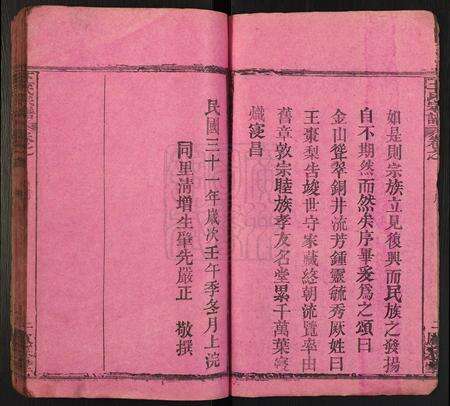 如是則宗族立見復興而民族之發揚
自不期然而然矣序畢爰為之頌曰
金山聳翠銅井流芳鍾靈毓秀厥姓曰
王棗梨告竣世守家藏終朝流覽率由
舊章敦宗睦族孝友名堂累千萬葉寖
熾寖昌
民國三十一年歲次壬午季冬月上浣
同里清增生肇先嚴正 敬撰